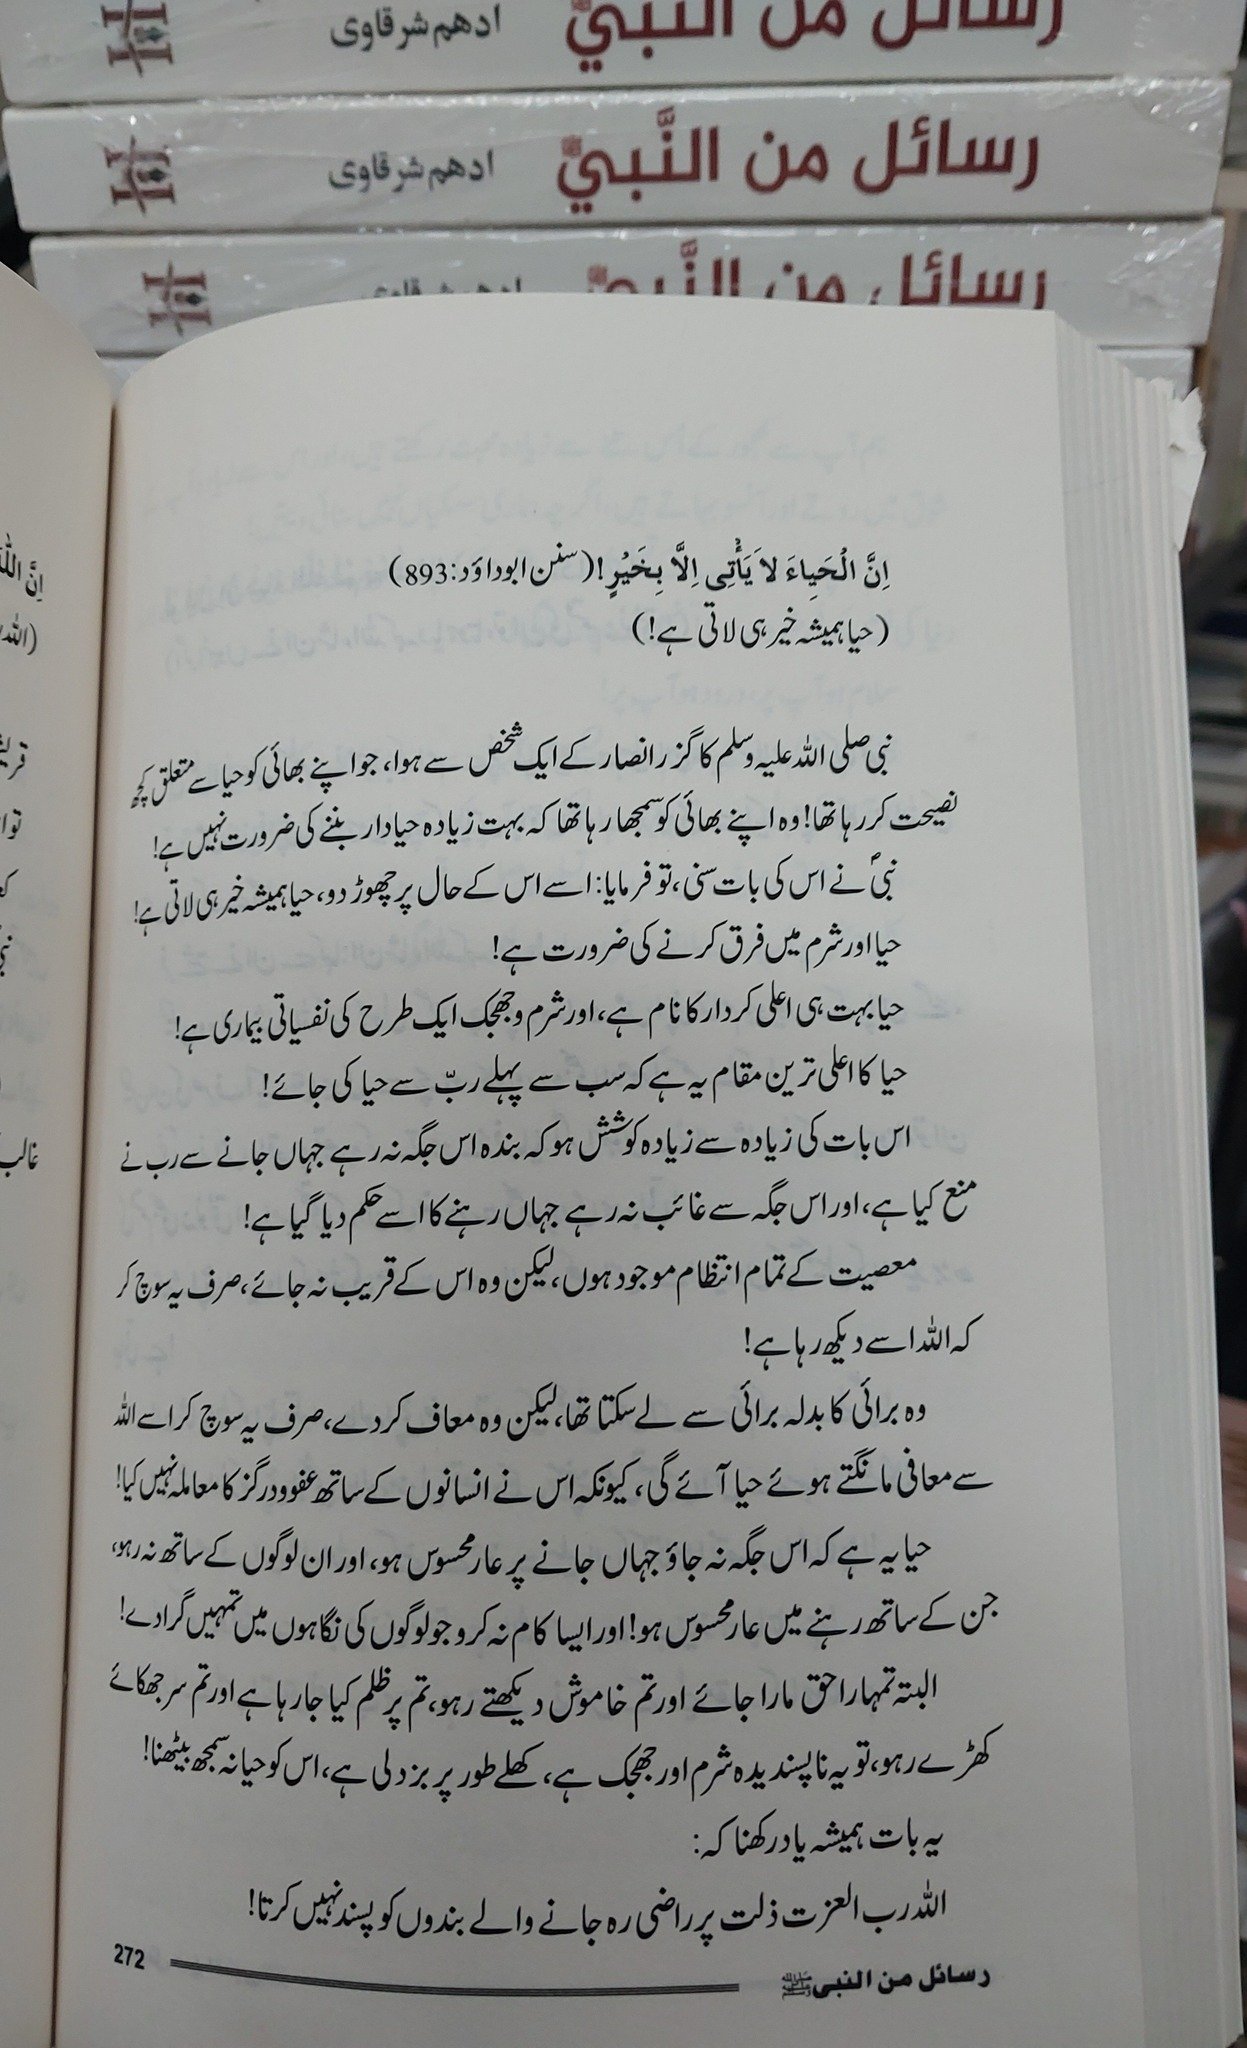 رسائل من النبيﷺ ادھم شرقاوی
رسائل من النَّبيﷺ ادھم شرقاوی
رسائل من النَّبيﷺ ادھم شرقاوی
اِنَّ الْحَیَاءَ لاَ یَأْتِی اِلاَّ بِخَیْرٍ!(سنن ابوداؤد:893)
(حیا ہمیشہ خیر ہی لاتی ہے!)
نبی صلی اللہ علیہ وسلم کا گزر انصار کے ایک شخص سے ہوا، جو اپنے بھائی کو حیا سے متعلق کچھ
نصیحت کر رہا تھا! وہ اپنے بھائی کو سمجھا رہا تھا کہ بہت زیادہ حیادار بننے کی ضرورت نہیں ہے!
نبیؐ نے اس کی بات سنی، تو فرمایا: اسے اس کے حال پر چھوڑ دو، حیا ہمیشہ خیر ہی لاتی ہے!
حیا اور شرم میں فرق کرنے کی ضرورت ہے!
حیا بہت ہی اعلی کردار کا نام ہے، اور شرم و جھجک ایک طرح کی نفسیاتی بیماری ہے!
حیا کا اعلی ترین مقام یہ ہے کہ سب سے پہلے ربّ سے حیا کی جائے!
اس بات کی زیادہ سے زیادہ کوشش ہو کہ بندہ اس جگہ نہ رہے جہاں جانے سے رب نے
منع کیا ہے، اور اس جگہ سے غائب نہ رہے جہاں رہنے کا اسے حکم دیا گیا ہے!
معصیت کے تمام انتظام موجود ہوں، لیکن وہ اس کے قریب نہ جائے، صرف یہ سوچ کر
کہ اللہ اسے دیکھ رہا ہے!
وہ برائی کا بدلہ برائی سے لے سکتا تھا، لیکن وہ معاف کر دے، صرف یہ سوچ کر اسے اللہ
سے معافی مانگتے ہوئے حیا آئے گی، کیونکہ اس نے انسانوں کے ساتھ عفوو درگزر کا معاملہ نہیں کیا!
حیا یہ ہے کہ اس جگہ نہ جاؤ جہاں جانے پر عار محسوس ہو، اور ان لوگوں کے ساتھ نہ رہو،
جن کے ساتھ رہنے میں عار محسوس ہو! اور ایسا کام نہ کرو جو لوگوں کی نگاہوں میں تمہیں گرا دے!
البتہ تمہارا حق مارا جائے اور تم خاموش دیکھتے رہو، تم پر ظلم کیا جا رہا ہے اور تم سر جھکائے
کھڑے رہو، تو یہ ناپسندیدہ شرم اور جھجک ہے، کھلے طور پر بزدلی ہے، اس کو حیا نہ سمجھ بیٹھنا!
یہ بات ہمیشہ یاد رکھنا کہ:
اللہ رب العزت ذلت پر راضی رہ جانے والے بندوں کو پسند نہیں کرتا!
رسائل من النبیﷺ 272